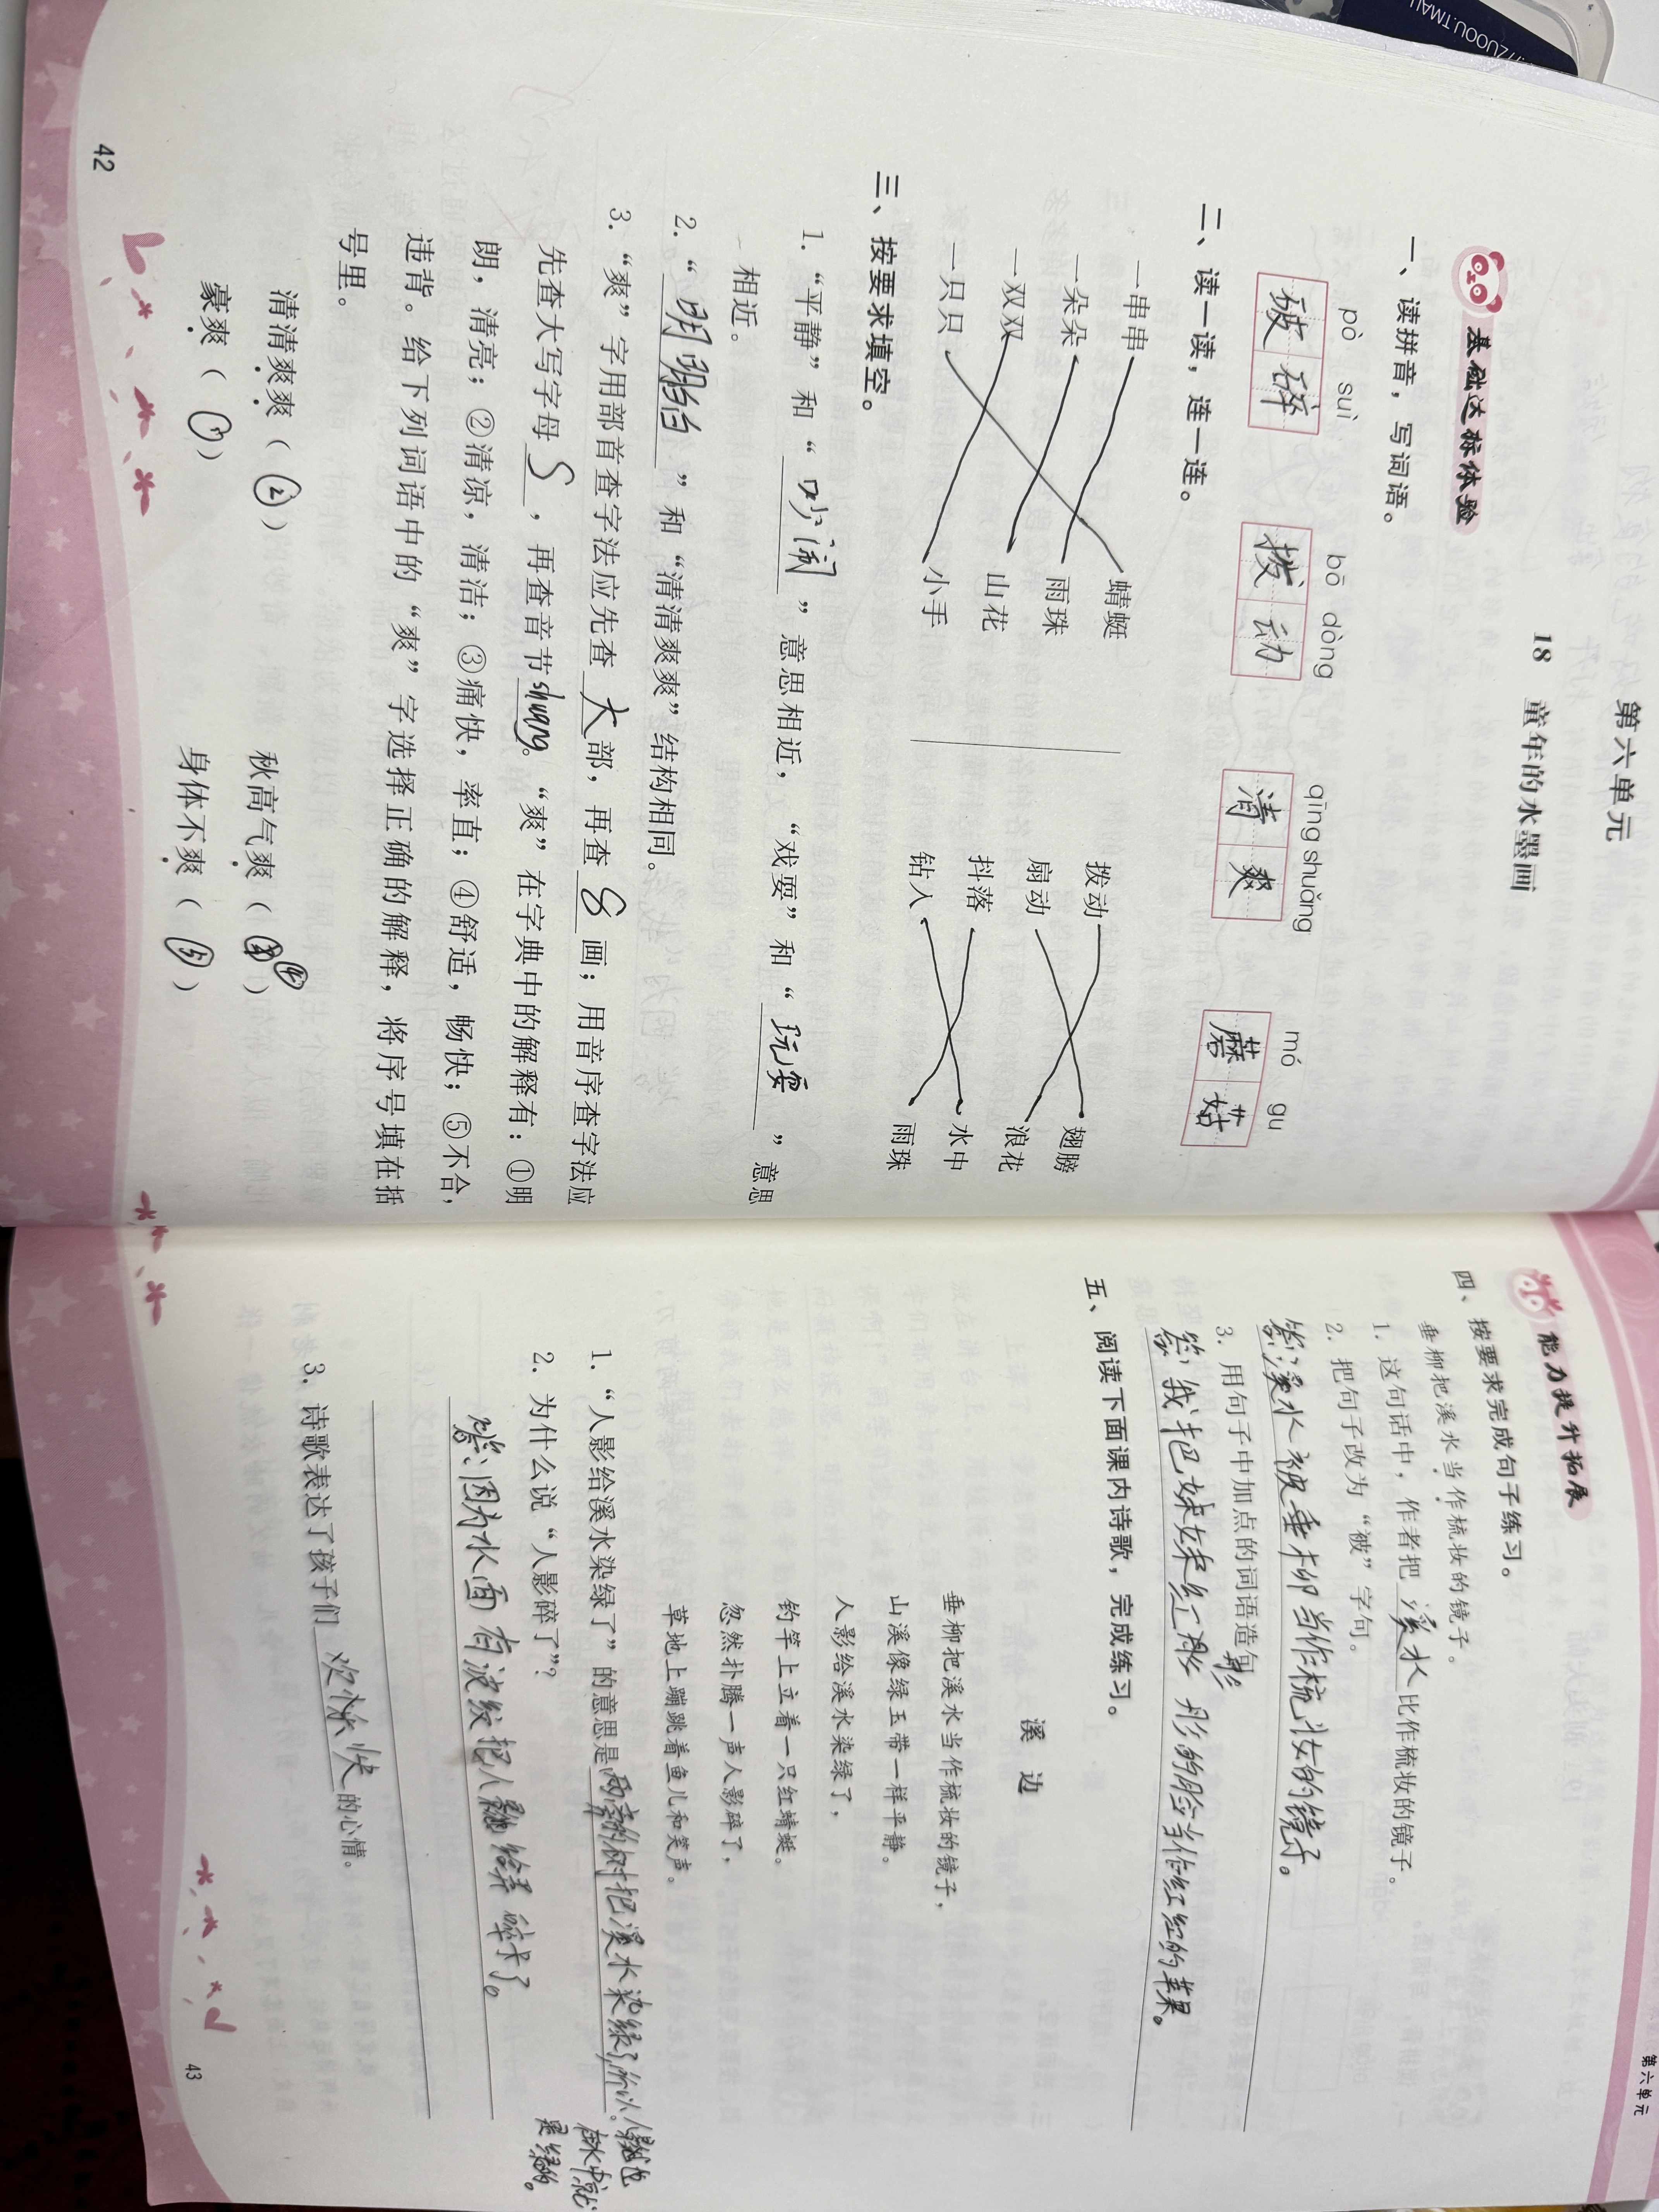 第六单元
18 童年的水墨画
基础达标体验
一、读拼音，写词语。
pò suì bō dòng qīng shuǎng mó gu
破碎 拨动 清爽 蘑菇
二、读一读，连一连。
一串串 蜻蜓 拨动 翅膀
一朵朵 雨珠 扇动 浪花
一双双 山花 抖落 水中
一只只 小手 钻入 雨珠
三、按要求填空。
1. “平静”和“吵闹”意思相近，“戏耍”和“玩耍”意思
相近。
2. “明明白白”和“清清爽爽”结构相同。
3. “爽”字用部首查字法应先查大部，再查8画；用音序查字法应
先查大写字母S，再查音节shuang。“爽”在字典中的解释有：①明
朗，清亮；②清凉，清洁；③痛快，率直；④舒适，畅快；⑤不合，
违背。给下列词语中的“爽”字选择正确的解释，将序号填在括
号里。
清清爽爽（②） 秋高气爽（④）
豪爽（ ） 身体不爽（⑤）
42
第六单元
能力提升拓展
四、按要求完成句子练习。
垂柳把溪水当作梳妆的镜子。
1. 这句话中，作者把溪水比作梳妆的镜子。
2. 把句子改为“被”字句。
答：溪水被垂柳当作梳妆的镜子。
3. 用句子中加点的词语造句
答：我把妹妹红彤彤的脸当作红红的苹果。
五、阅读下面课内诗歌，完成练习。
溪 边
垂柳把溪水当作梳妆的镜子，
山溪像绿玉带一样平静。
人影给溪水染绿了，
钓竿上立着一只红蜻蜓。
忽然扑腾一声人影碎了，
草地上蹦跳着鱼儿和笑声。
1. “人影给溪水染绿了”的意思是两旁的树把溪水染绿了，所以人影也
在水中就
是绿的。
2. 为什么说“人影碎了”？
答：因为水面有波纹把人影给弄碎了。
3. 诗歌表达了孩子们欢快的心情。
43